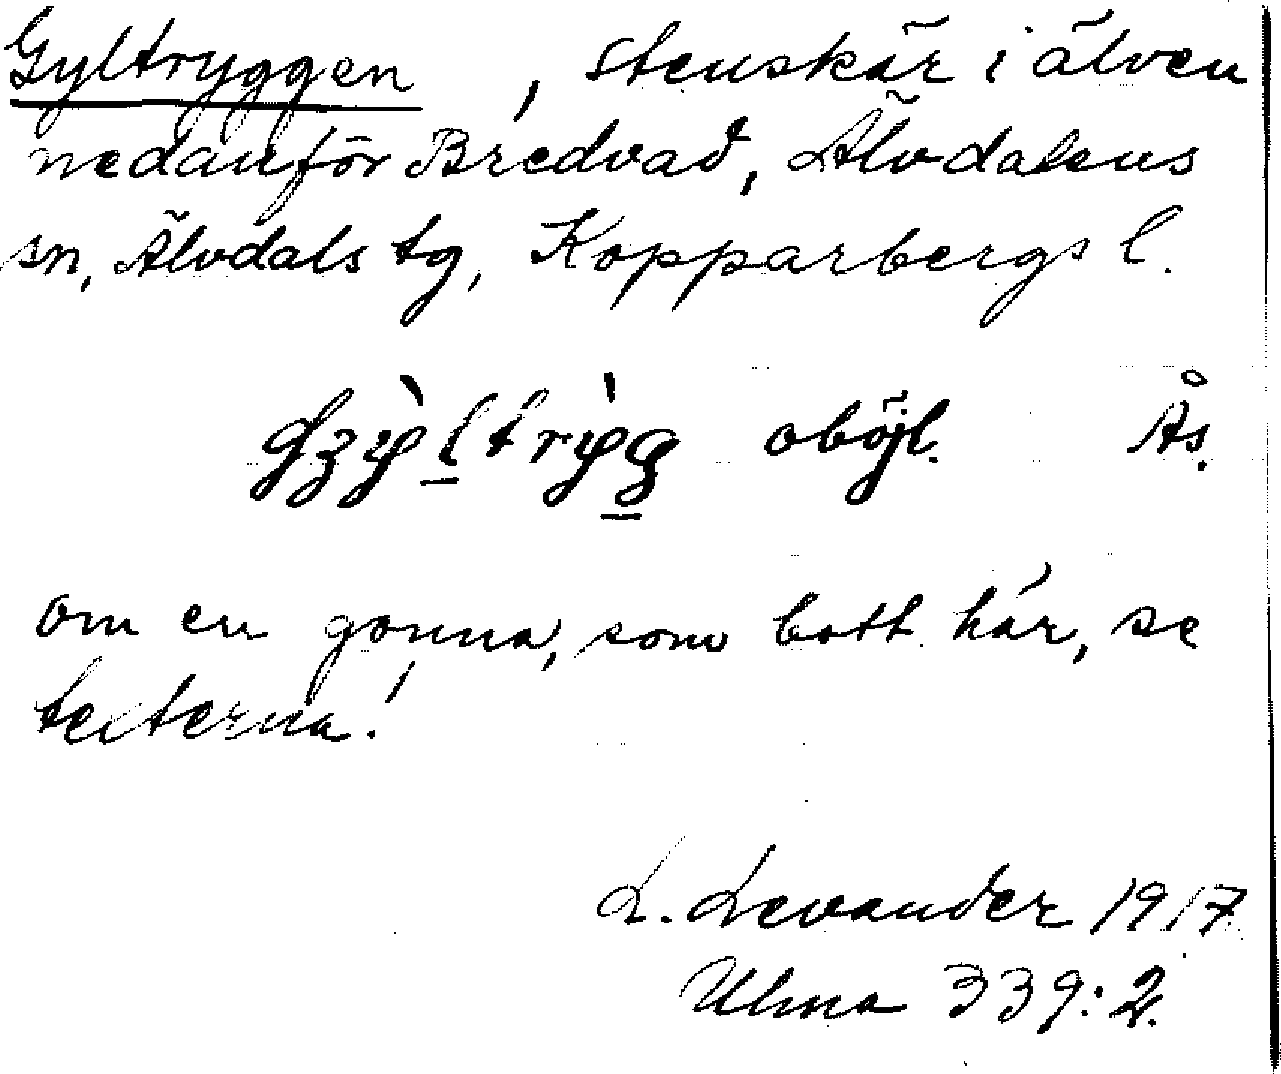 Gyltryggen, stenskär i älven
nedanför Bredvad, Älvdalens
sn, Älvdals tg, Kopparbergs l.
oböjl. Ås.
om en gonna, som bott här, se
texterna!
L. Levander 1917
Ulma 339:2.